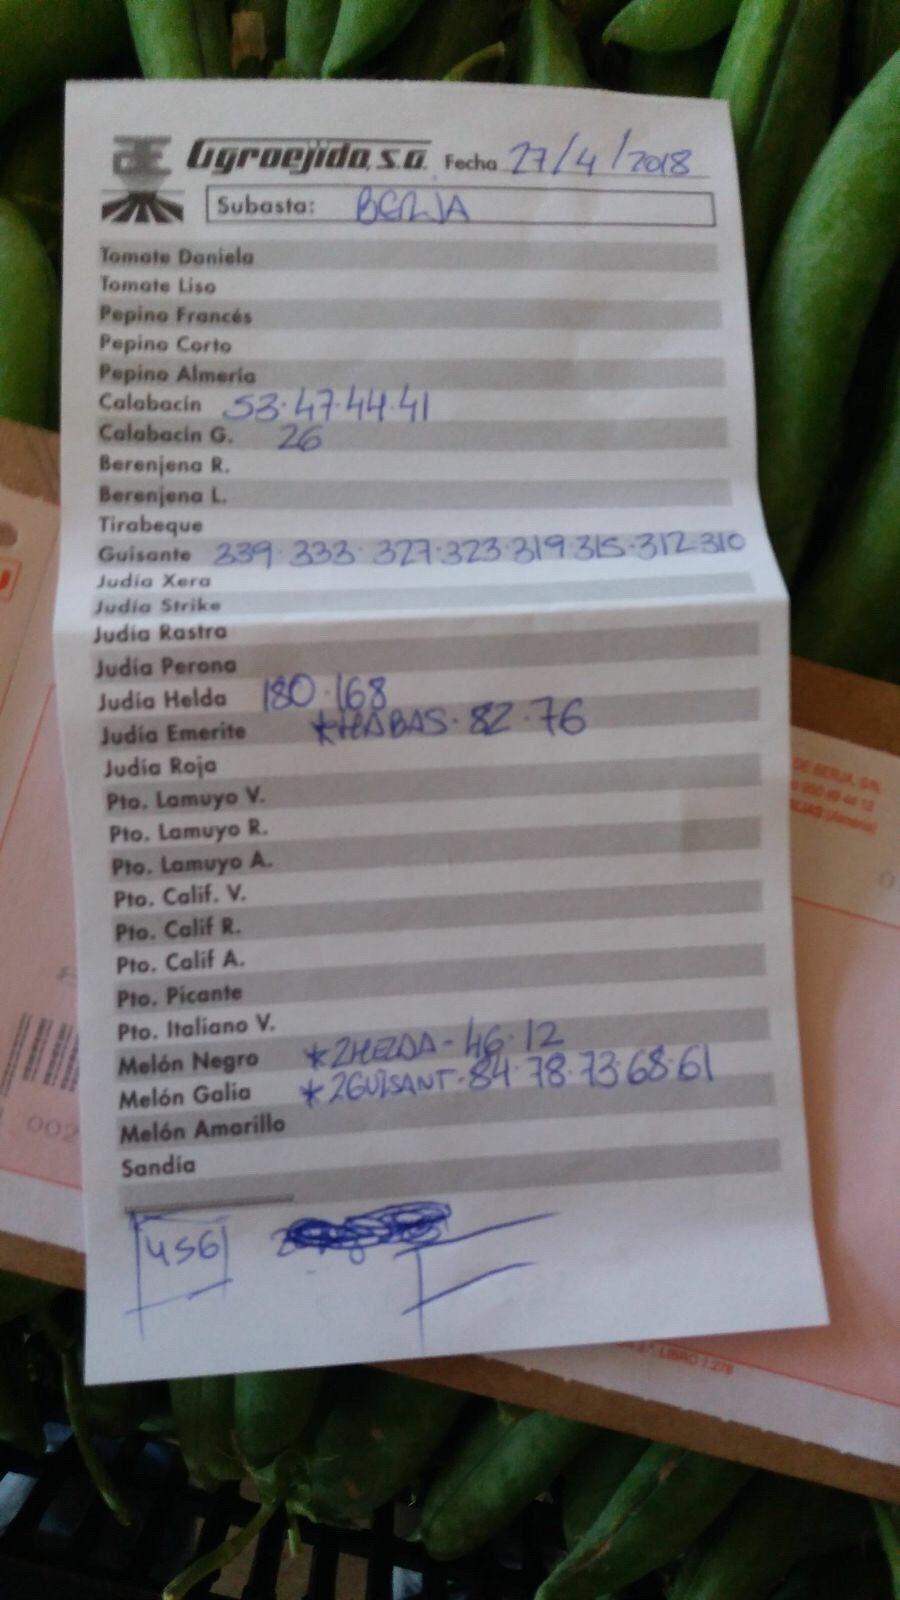 Agroejido, s.a. Fecha 27/4/2018
Subasta: BERJA
Tomate Daniela
Tomate Liso
Pepino Francés
Pepino Corto
Pepino Almería
Calabacín 53·47·44·41
Calabacín G. 26
Berenjena R.
Berenjena L.
Tirabeque
Guisante 339·333·327·323·319·315·312·310
Judía Xera
Judía Strike
Judía Rastra
Judía Perona
Judía Helda 180·168
Judía Emerite *HABAS·82·76
Judía Roja
Pto. Lamuyo V.
Pto. Lamuyo R.
Pto. Lamuyo A.
Pto. Calif. V.
Pto. Calif R.
Pto. Calif A.
Pto. Picante
Pto. Italiano V.
Melón Negro *2HELDA-46·12
Melón Galia *2GUISANT·84·78·73·68·61
Melón Amarillo
Sandía
456
DE BERJA, S/N
950 49 44 12
(Almería)
002
LIBRO 1.278